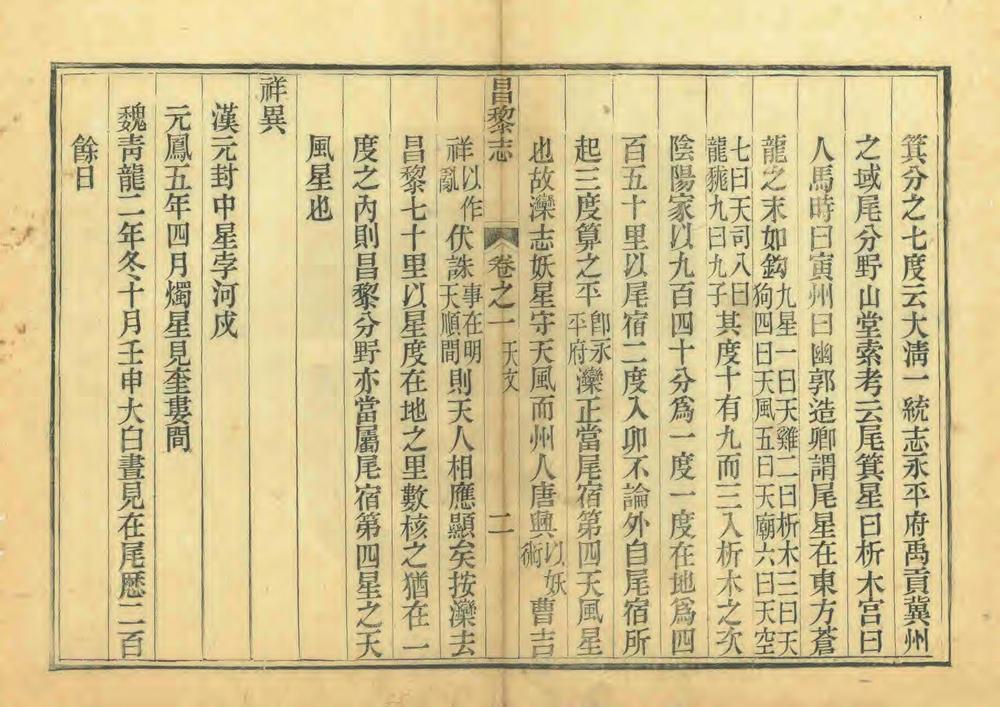 箕分之七度云大淸一統志永平府禹貢冀州
之域尾分野山堂索考云尾箕星曰析木宮曰
人馬時曰寅州曰幽郭造卿謂尾星在東方蒼
龍之末如鈎九星一曰天雞二曰析木三曰天狗四曰天風五曰天廟六曰天空
七曰天司八曰龍𪚥九曰九子其度十有九而三入析木之次
陰陽家以九百四十分爲一度一度在地爲四
百五十里以尾宿二度入卯不論外自尾宿所
起三度算之平卽永平府灤正當尾宿第四天風星
也故灤志妖星守天風而州人唐興以妖術曹吉
祥以作亂伏誅事在明天順間則天人相應顯矣按灤去
昌黎七十里以星度在地之里數核之猶在一
度之內則昌黎分野亦當屬尾宿第四星之天
風星也
祥異
漢元封中星孛河戍
元鳳五年四月燭星見奎婁間
魏靑龍二年冬十月壬申大白晝見在尾歷二百
餘日
昌黎志 卷之一 天文 二